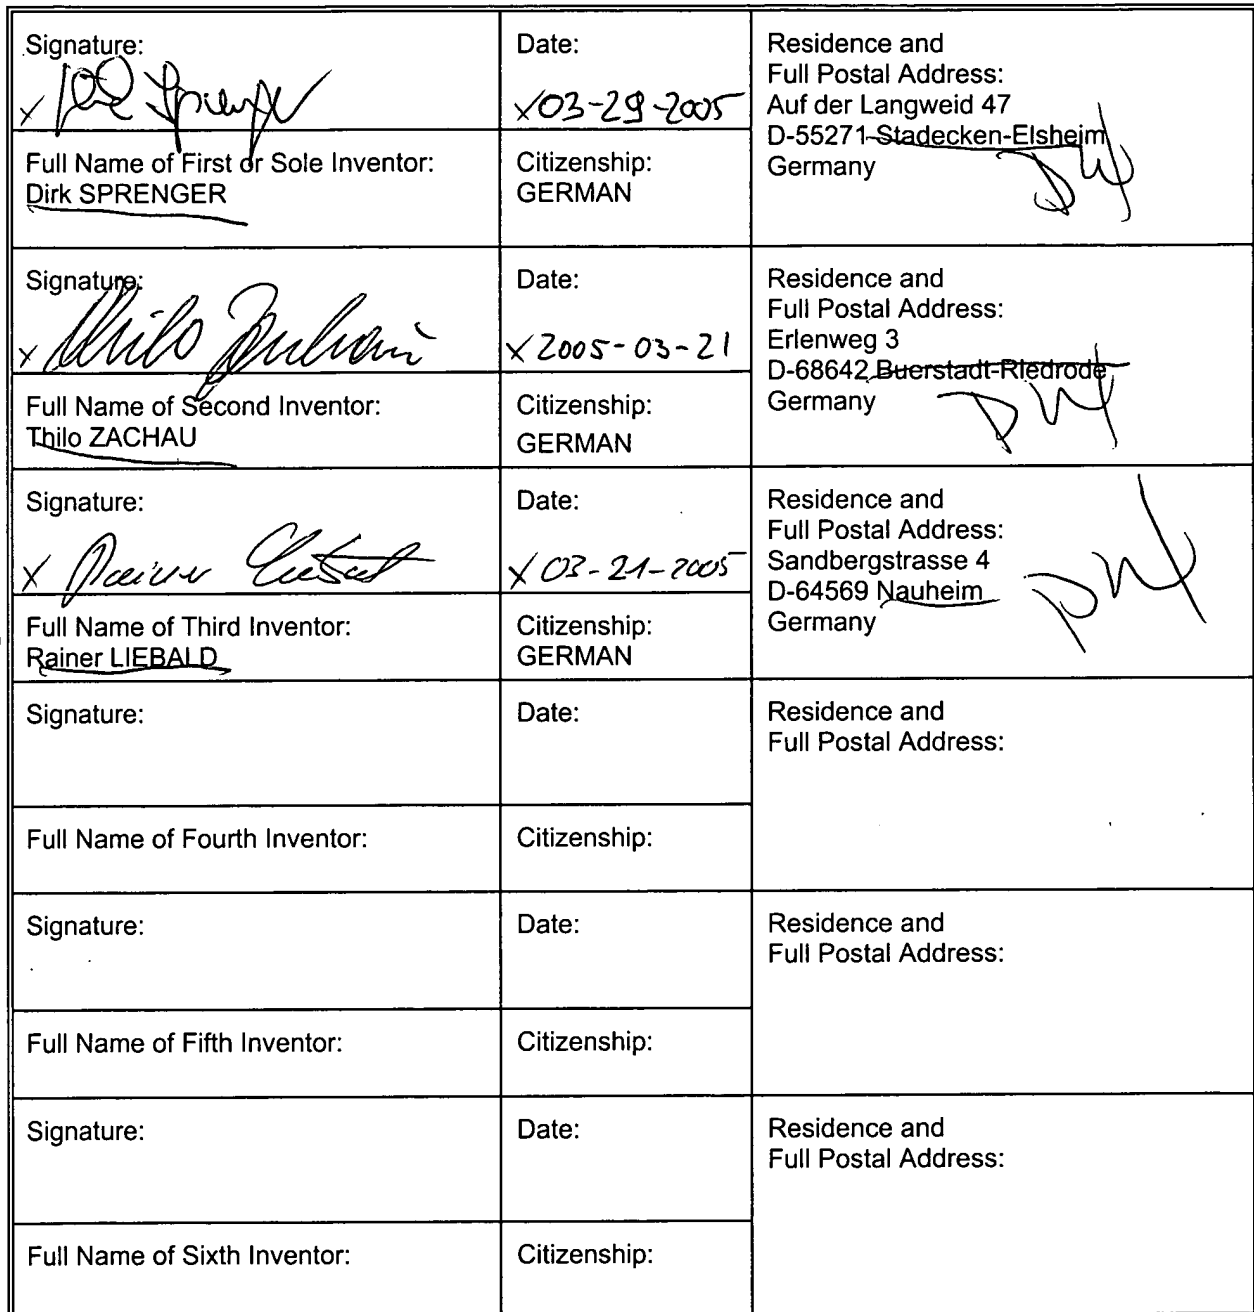 Signature:
x Dirk Sprenger
Date:
x 03-29-2005
Residence and
Full Postal Address:
Auf der Langweid 47
D-55271 Stadecken-Elsheim
Germany
Full Name of First or Sole Inventor:
Dirk SPRENGER
Citizenship:
GERMAN
Signature:
x Thilo Zachau
Date:
x 2005-03-21
Residence and
Full Postal Address:
Erlenweg 3
D-68642 Buerstadt-Riedrode
Germany
Full Name of Second Inventor:
Thilo ZACHAU
Citizenship:
GERMAN
Signature:
x Rainer Liebald
Date:
x 03-21-2005
Residence and
Full Postal Address:
Sandbergstrasse 4
D-64569 Nauheim
Germany
Full Name of Third Inventor:
Rainer LIEBALD
Citizenship:
GERMAN
Signature:
Date:
Residence and
Full Postal Address:
Full Name of Fourth Inventor:
Citizenship:
Signature:
Date:
Residence and
Full Postal Address:
Full Name of Fifth Inventor:
Citizenship:
Signature:
Date:
Residence and
Full Postal Address:
Full Name of Sixth Inventor:
Citizenship: